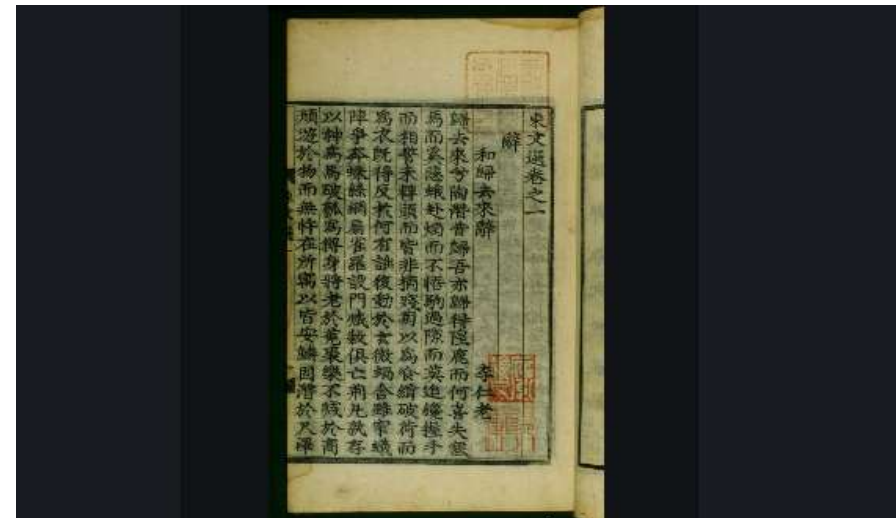 東文選卷之一
辭
和歸去來辭 李仁老
歸去來兮陶潛昔歸吾亦歸得隍鹿而何喜失塞
馬而奚悲蛾赴燭而不悟駒過隙而莫追纔握手
而相誓未轉頭而皆非摘殘菊以爲食緝破荷而
爲衣既得反於何有誰復動於玄微蝸舍雖窄蟻
陣爭奔蛛絲網扇雀羅設門臧穀俱亡荊凡孰存
以神爲馬破瓠爲樽身將老於菟裘樂不減於商
顔遊於物而無忤在所寓以皆安鱗固潛於尺澤